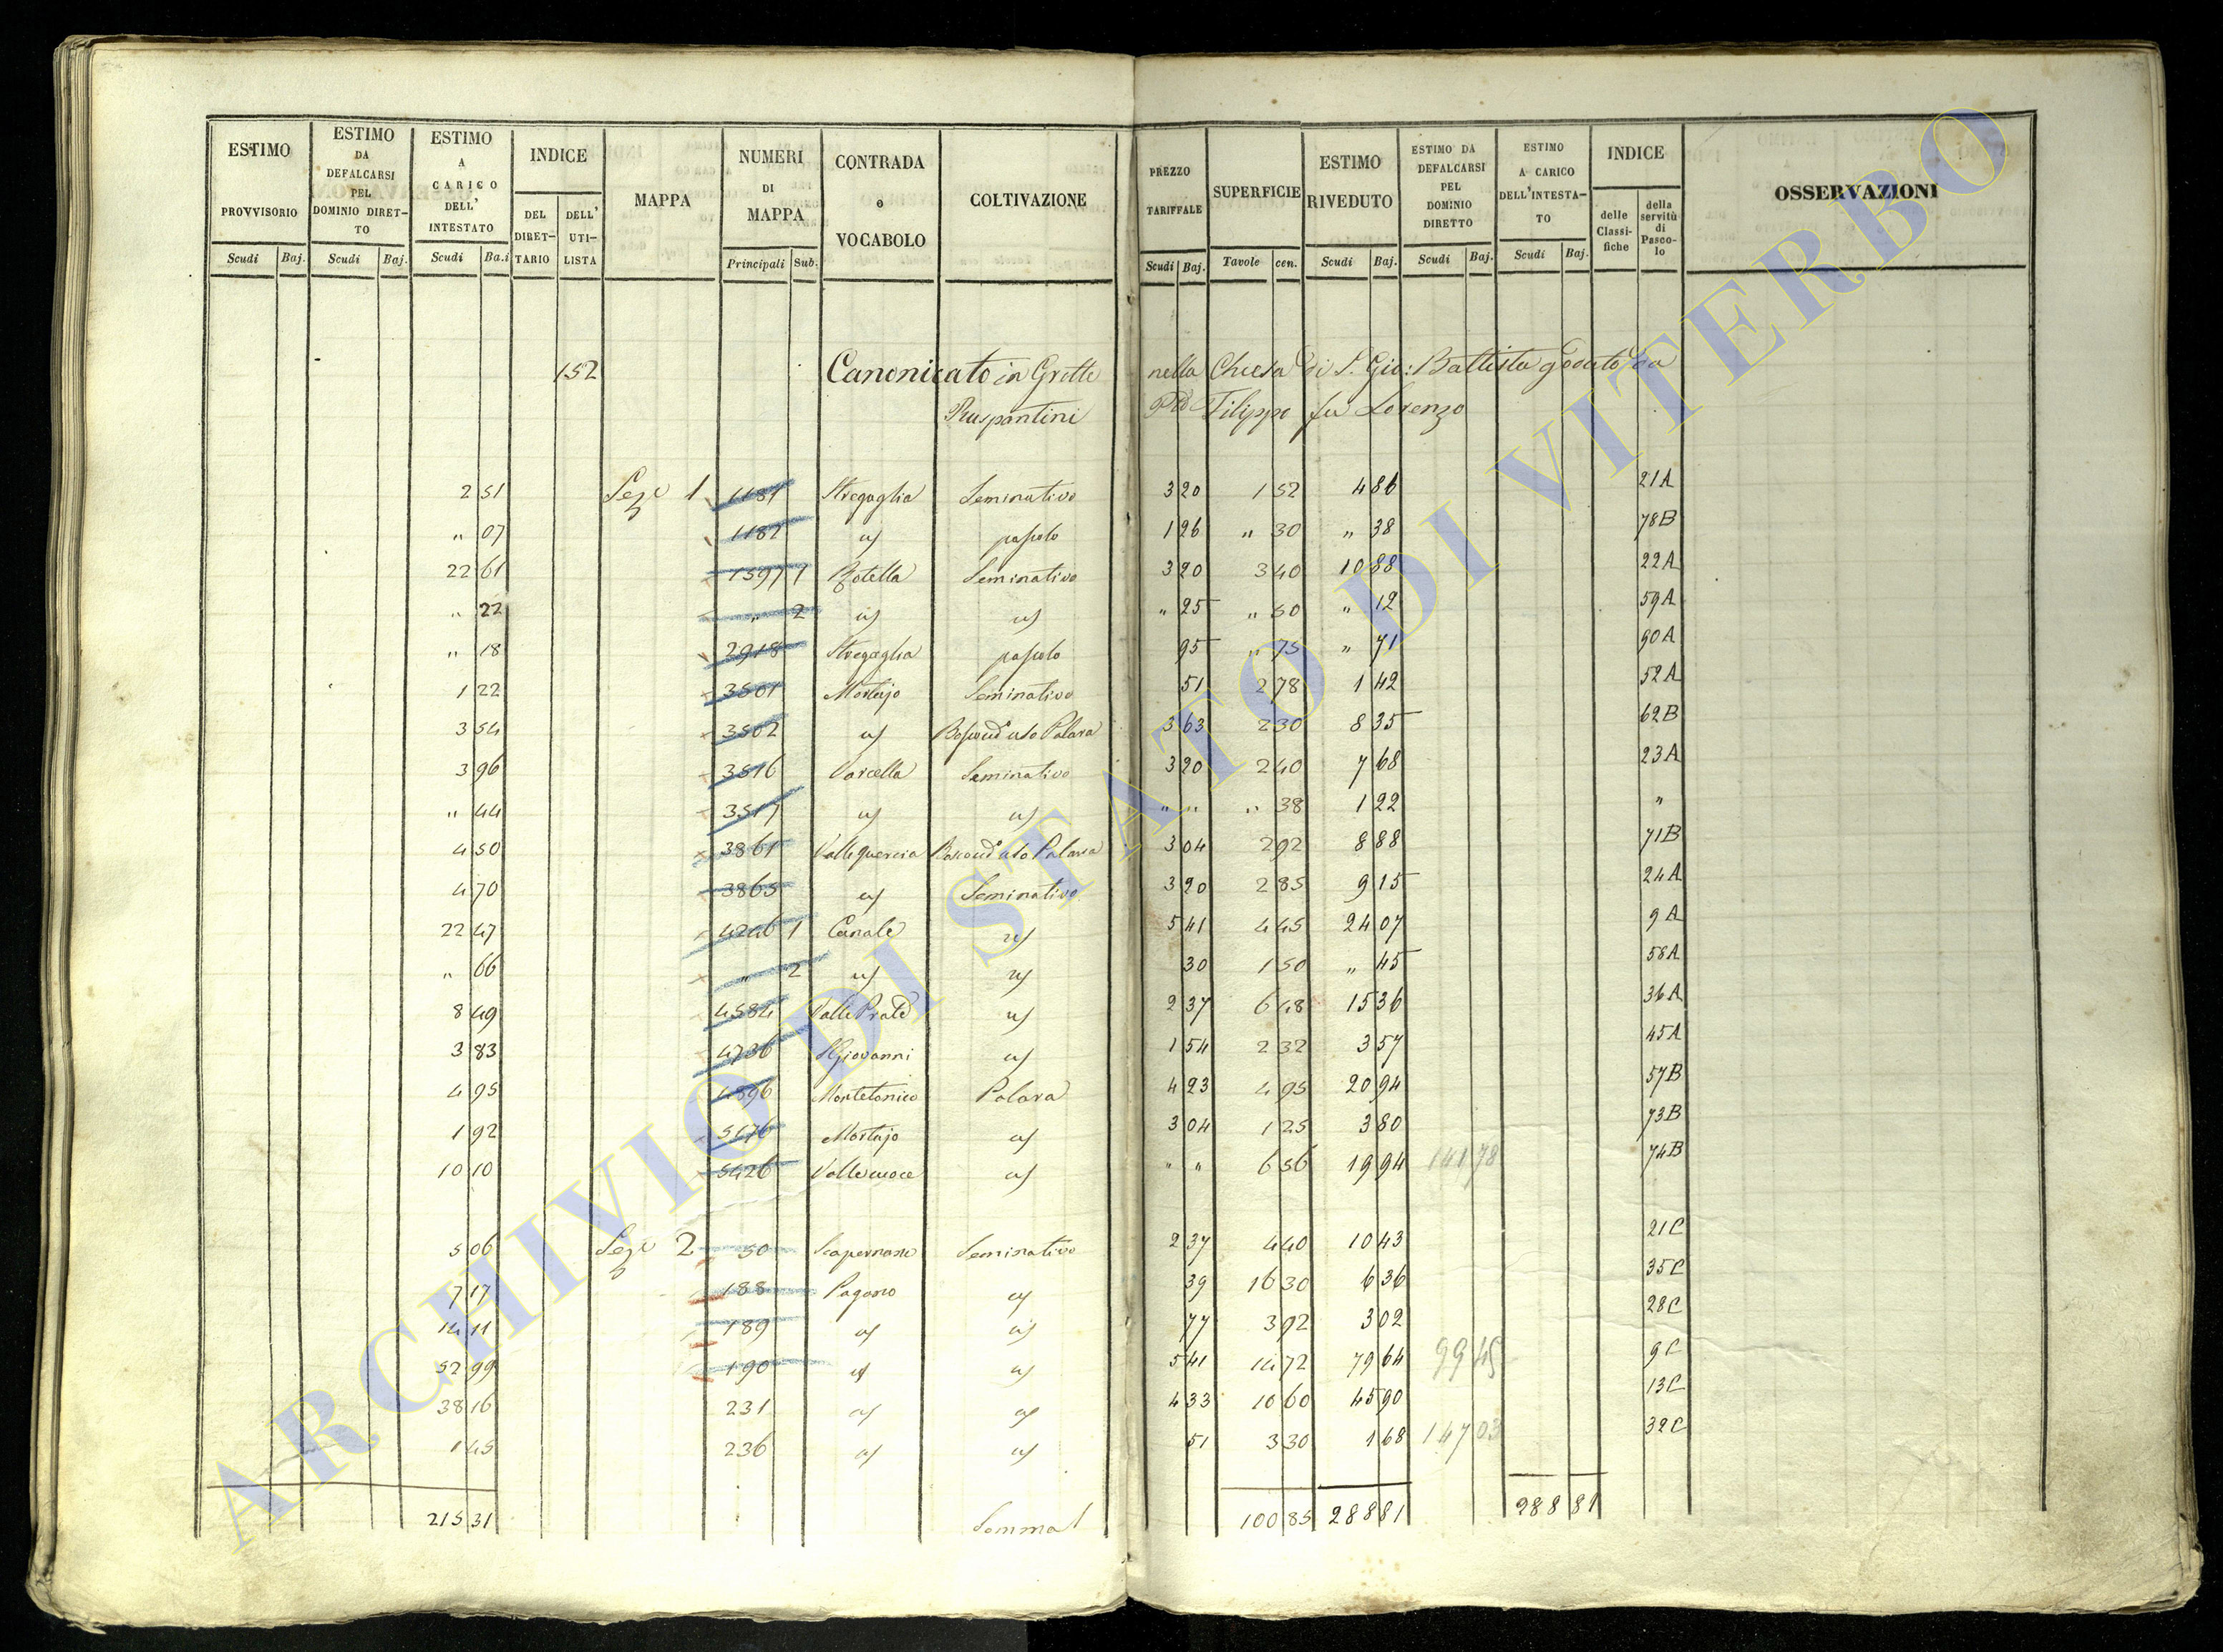 ESTIMO PROVVISORIO Scudi Baj. | ESTIMO DA DEFALCARSI PEL DOMINIO DIRET-TO Scudi Baj. | ESTIMO A CARICO DELL' INTESTATO Scudi Ba.i | INDICE DEL DIRET-TARIO DELL' UTI-LISTA | MAPPA | NUMERI DI MAPPA Principali Sub. | CONTRADA e VOCABOLO | COLTIVAZIONE | PREZZO TARIFFALE Scudi Baj. | SUPERFICIE Tavole cen. | ESTIMO RIVEDUTO Scudi Baj. | ESTIMO DA DEFALCARSI PEL DOMINIO DIRETTO Scudi Baj. | ESTIMO A CARICO DELL'INTESTA-TO Scudi Baj. | INDICE delle Classi-fiche della servitù di Pasco-lo | OSSERVAZIONI
152 Canonicato in Grotte nella Chiesa di S. Gio: Battista goduto da
Ruspantini Filippo fu Lorenzo
2 51 Seze 1 1181 Stregaglia Seminativo 3 20 1 52 4 86 21A
" 07 1182 id pascolo 1 26 " 30 " 38 78B
22 61 1597 1 Botella Seminativo 3 20 3 40 10 88 22A
" 22 " 2 id id " 25 " 50 " 12 59A
" 18 2918 Stregaglia pascolo 95 " 75 " 71 90A
1 22 3501 Mortajo Seminativo 51 2 78 1 42 52A
3 54 3502 id Palara 3 63 2 30 8 35 62B
3 96 3516 Varcella Seminativo 3 20 2 40 7 68 23A
" 44 3517 id id " " " 38 1 22 "
4 50 3861 Valle quercia Palara 3 04 2 92 8 88 71B
4 70 3865 id Seminativo 3 20 2 85 9 15 24A
22 47 4246 1 Canale id 5 41 4 45 24 07 9A
" 66 " 2 id id 30 1 50 " 45 58A
8 49 4584 Valle Prato id 2 37 6 48 15 36 36A
3 83 4736 S Giovanni id 1 54 2 32 3 57 45A
4 95 4896 Montetonico Palara 4 23 4 95 20 94 57B
1 92 5176 Mortajo id 3 04 1 25 3 80 73B
10 10 5426 Vallecuoce id " " 6 56 19 94 141 78 74B
5 06 Seze 2 50 Scapernano Seminativo 2 37 4 40 10 43 21C
7 17 188 Pagano id 39 16 30 6 36 35C
14 11 189 id id 77 3 92 3 02 28C
52 99 190 id id 5 41 14 72 79 64 99 45 9C
38 16 231 id id 4 33 10 60 45 90 13C
1 45 236 id id 51 3 30 1 68 147 03 32C
215 31 Somma 100 85 288 81 288 81
ARCHIVIO DI STATO DI VITERBO